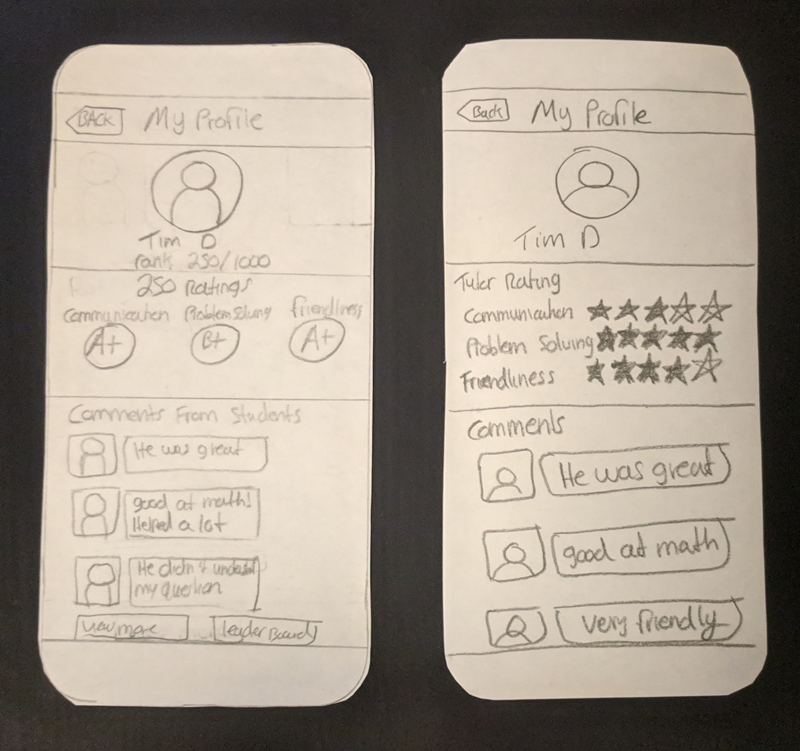 BACK My Profile
Tim D
rank 250/1000
250 Ratings
Communication Problem Solving Friendliness
A+ B+ A+
Comments From Students
He was great
good at math!
Helped a lot
He didn't understand
my question
view more leader Board
Back My Profile
Tim D
Tutor Rating
Communication
Problem Solving
Friendliness
Comments
He was great
good at math
very friendly